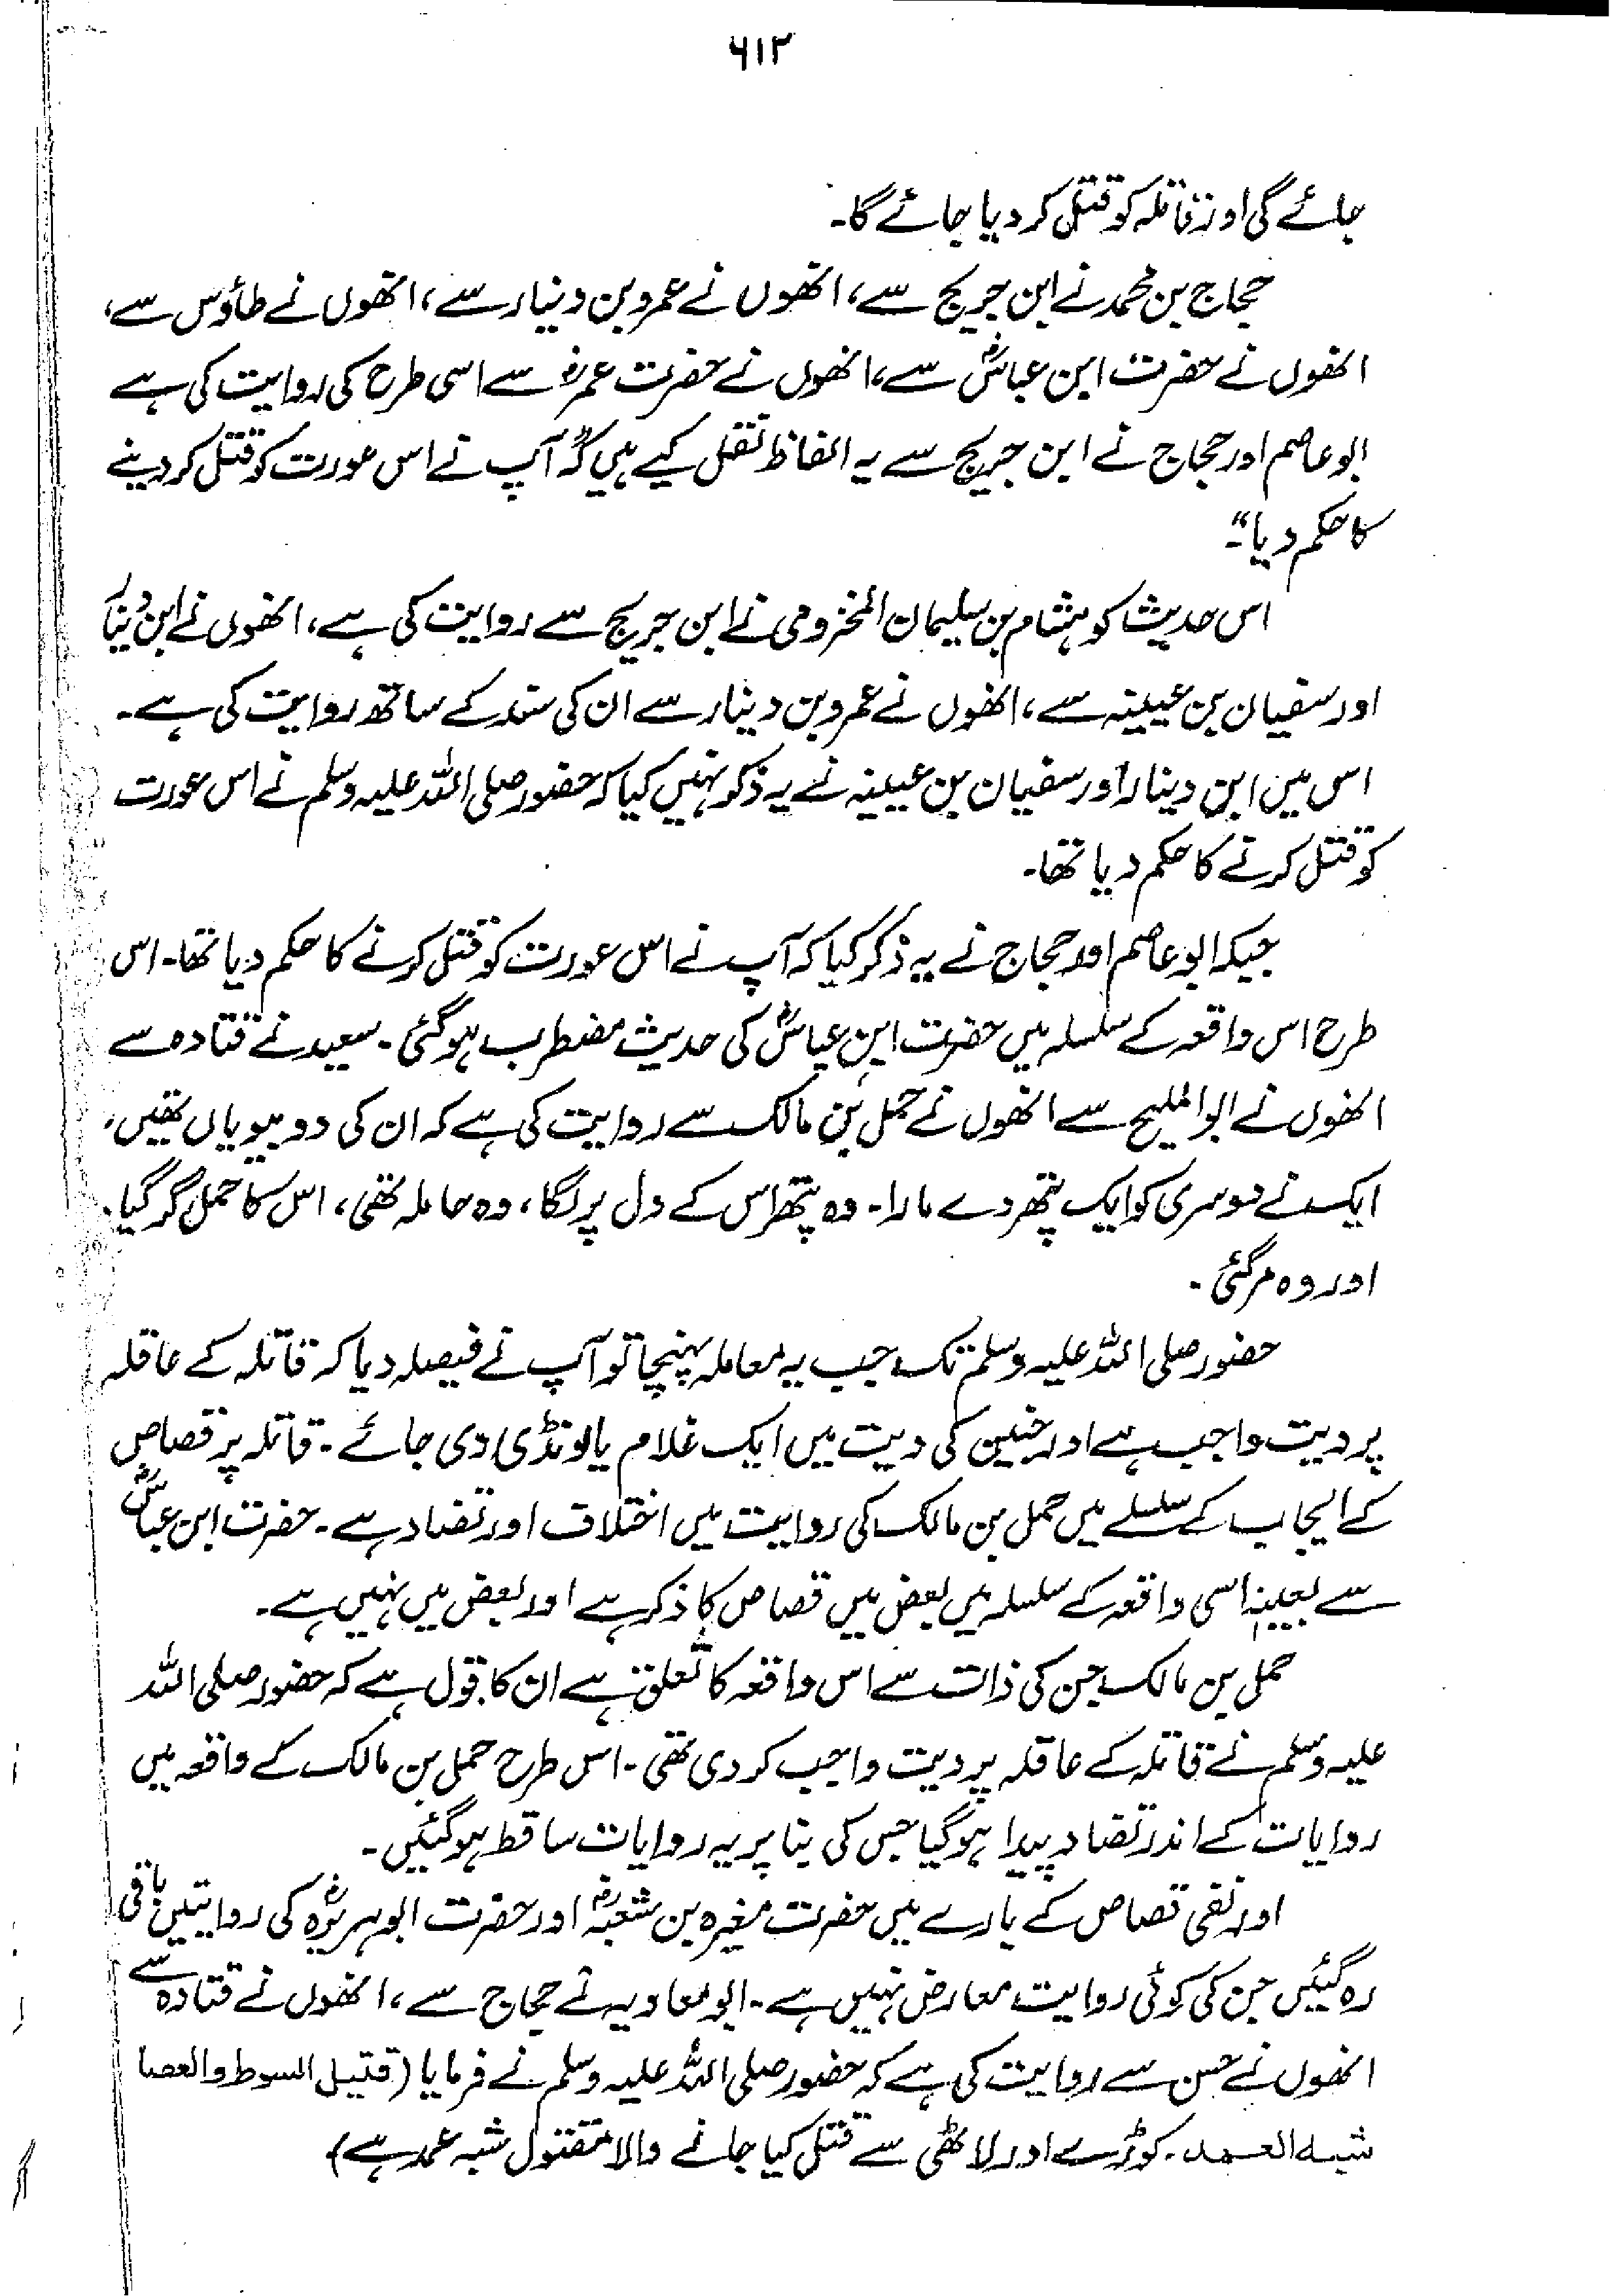 ۶۱۲
جائے گی اور قاتلہ کو قتل کر دیا جائے گا۔
حجاج بن محمد نے ابن جریج سے، انھوں نے عمرو بن دینار سے، انھوں نے طاؤس سے،
انھوں نے حضرت ابن عباسؓ سے، انھوں نے حضرت عمرؓ سے اسی طرح کی روایت کی ہے
ابو عاصم اور حجاج نے ابن جریج سے یہ الفاظ نقل کیے ہیں کہ "آپ نے اس عورت کو قتل کر دینے
کا حکم دیا"۔
اس حدیث کو ہشام بن سلیمان المخزومی نے ابن جریج سے روایت کی ہے، انھوں نے ابن دینار
اور سفیان بن عیینہ سے، انھوں نے عمرو بن دینار سے ان کی سند کے ساتھ روایت کی ہے۔
اس میں ابن دینار اور سفیان بن عیینہ نے یہ ذکر نہیں کیا کہ حضور صلی اللہ علیہ وسلم نے اس عورت
کو قتل کرنے کا حکم دیا تھا۔
جبکہ ابو عاصم اور حجاج نے یہ ذکر کیا کہ آپ نے اس عورت کو قتل کرنے کا حکم دیا تھا۔ اس
طرح اس واقعہ کے سلسلہ میں حضرت ابن عباسؓ کی حدیث مضطرب ہو گئی۔ سعید نے قتادہ سے
انھوں نے ابوالملیح سے انھوں نے حمل بن مالک سے روایت کی ہے کہ ان کی دو بیویاں تھیں،
ایک نے دوسری کو ایک پتھر دے مارا۔ وہ پتھر اس کے دل پر لگا، وہ حاملہ تھی، اس کا حمل گر گیا۔
اور وہ مر گئی۔
حضور صلی اللہ علیہ وسلم تک جب یہ معاملہ پہنچا تو آپ نے فیصلہ دیا کہ قاتلہ کے عاقلہ
پر دیت واجب ہے اور جنین کی دیت میں ایک غلام یا لونڈی دی جائے۔ قاتلہ پر قصاص
کے ایجاب کے سلسلے میں حمل بن مالک کی روایت میں اختلاف اور تضاد ہے۔ حضرت ابن عباسؓ
سے بعینہٖ اسی واقعہ کے سلسلہ میں بعض میں قصاص کا ذکر ہے اور بعض میں نہیں ہے۔
حمل بن مالک جن کی ذات سے اس واقعہ کا تعلق ہے ان کا قول ہے کہ حضور صلی اللہ
علیہ وسلم نے قاتلہ کے عاقلہ پر دیت واجب کر دی تھی۔ اس طرح حمل بن مالک کے واقعہ میں
روایات کے اندر تضاد پیدا ہو گیا جس کی بنا پر یہ روایات ساقط ہو گئیں۔
اور نفی قصاص کے بارے میں حضرت مغیرہ بن شعبہؓ اور حضرت ابوہریرہؓ کی روایتیں باقی
رہ گئیں جن کی کوئی روایت معارض نہیں ہے۔ ابو معاویہ نے حجاج سے، انھوں نے قتادہ سے
انھوں نے حسن سے روایت کی ہے کہ حضور صلی اللہ علیہ وسلم نے فرمایا (قتیل السوط والعصا
شبه العمد۔ کوڑے اور لاٹھی سے قتل کیا جانے والا مقتول شبہ عمد ہے)